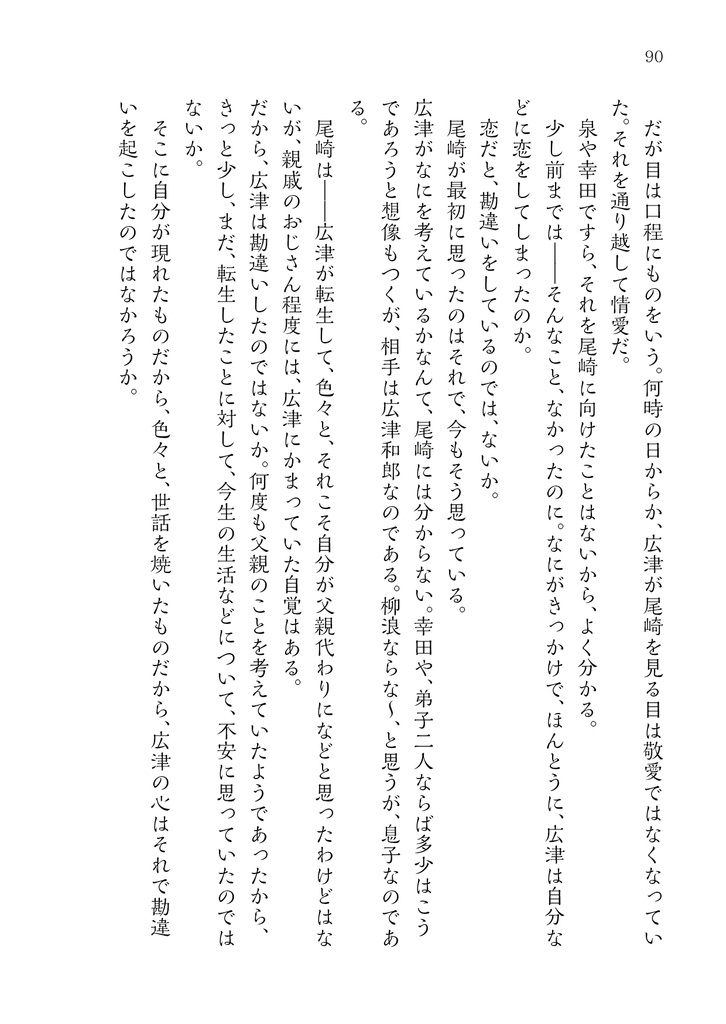 90
だが目は口程にものをいう。何時の日からか、広津が尾崎を見る目は敬愛ではなくなってい
た。それを通り越して情愛だ。
泉や幸田ですら、それを尾崎に向けたことはないから、よく分かる。
少し前までは――そんなこと、なかったのに。なにがきっかけで、ほんとうに、広津は自分な
どに恋をしてしまったのか。
恋だと、勘違いをしているのでは、ないか。
尾崎が最初に思ったのはそれで、今もそう思っている。
広津がなにを考えているかなんて、尾崎には分からない。幸田や、弟子二人ならば多少はこう
であろうと想像もつくが、相手は広津和郎なのである。柳浪ならな～、と思うが、息子なのであ
る。
尾崎は――広津が転生して、色々と、それこそ自分が父親代わりになどと思ったわけどはな
いが、親戚のおじさん程度には、広津にかまっていた自覚はある。
だから、広津は勘違いしたのではないか。何度も父親のことを考えていたようであったから、
きっと少し、まだ、転生したことに対して、今生の生活などについて、不安に思っていたのでは
ないか。
そこに自分が現れたものだから、色々と、世話を焼いたものだから、広津の心はそれで勘違
いを起こしたのではなかろうか。